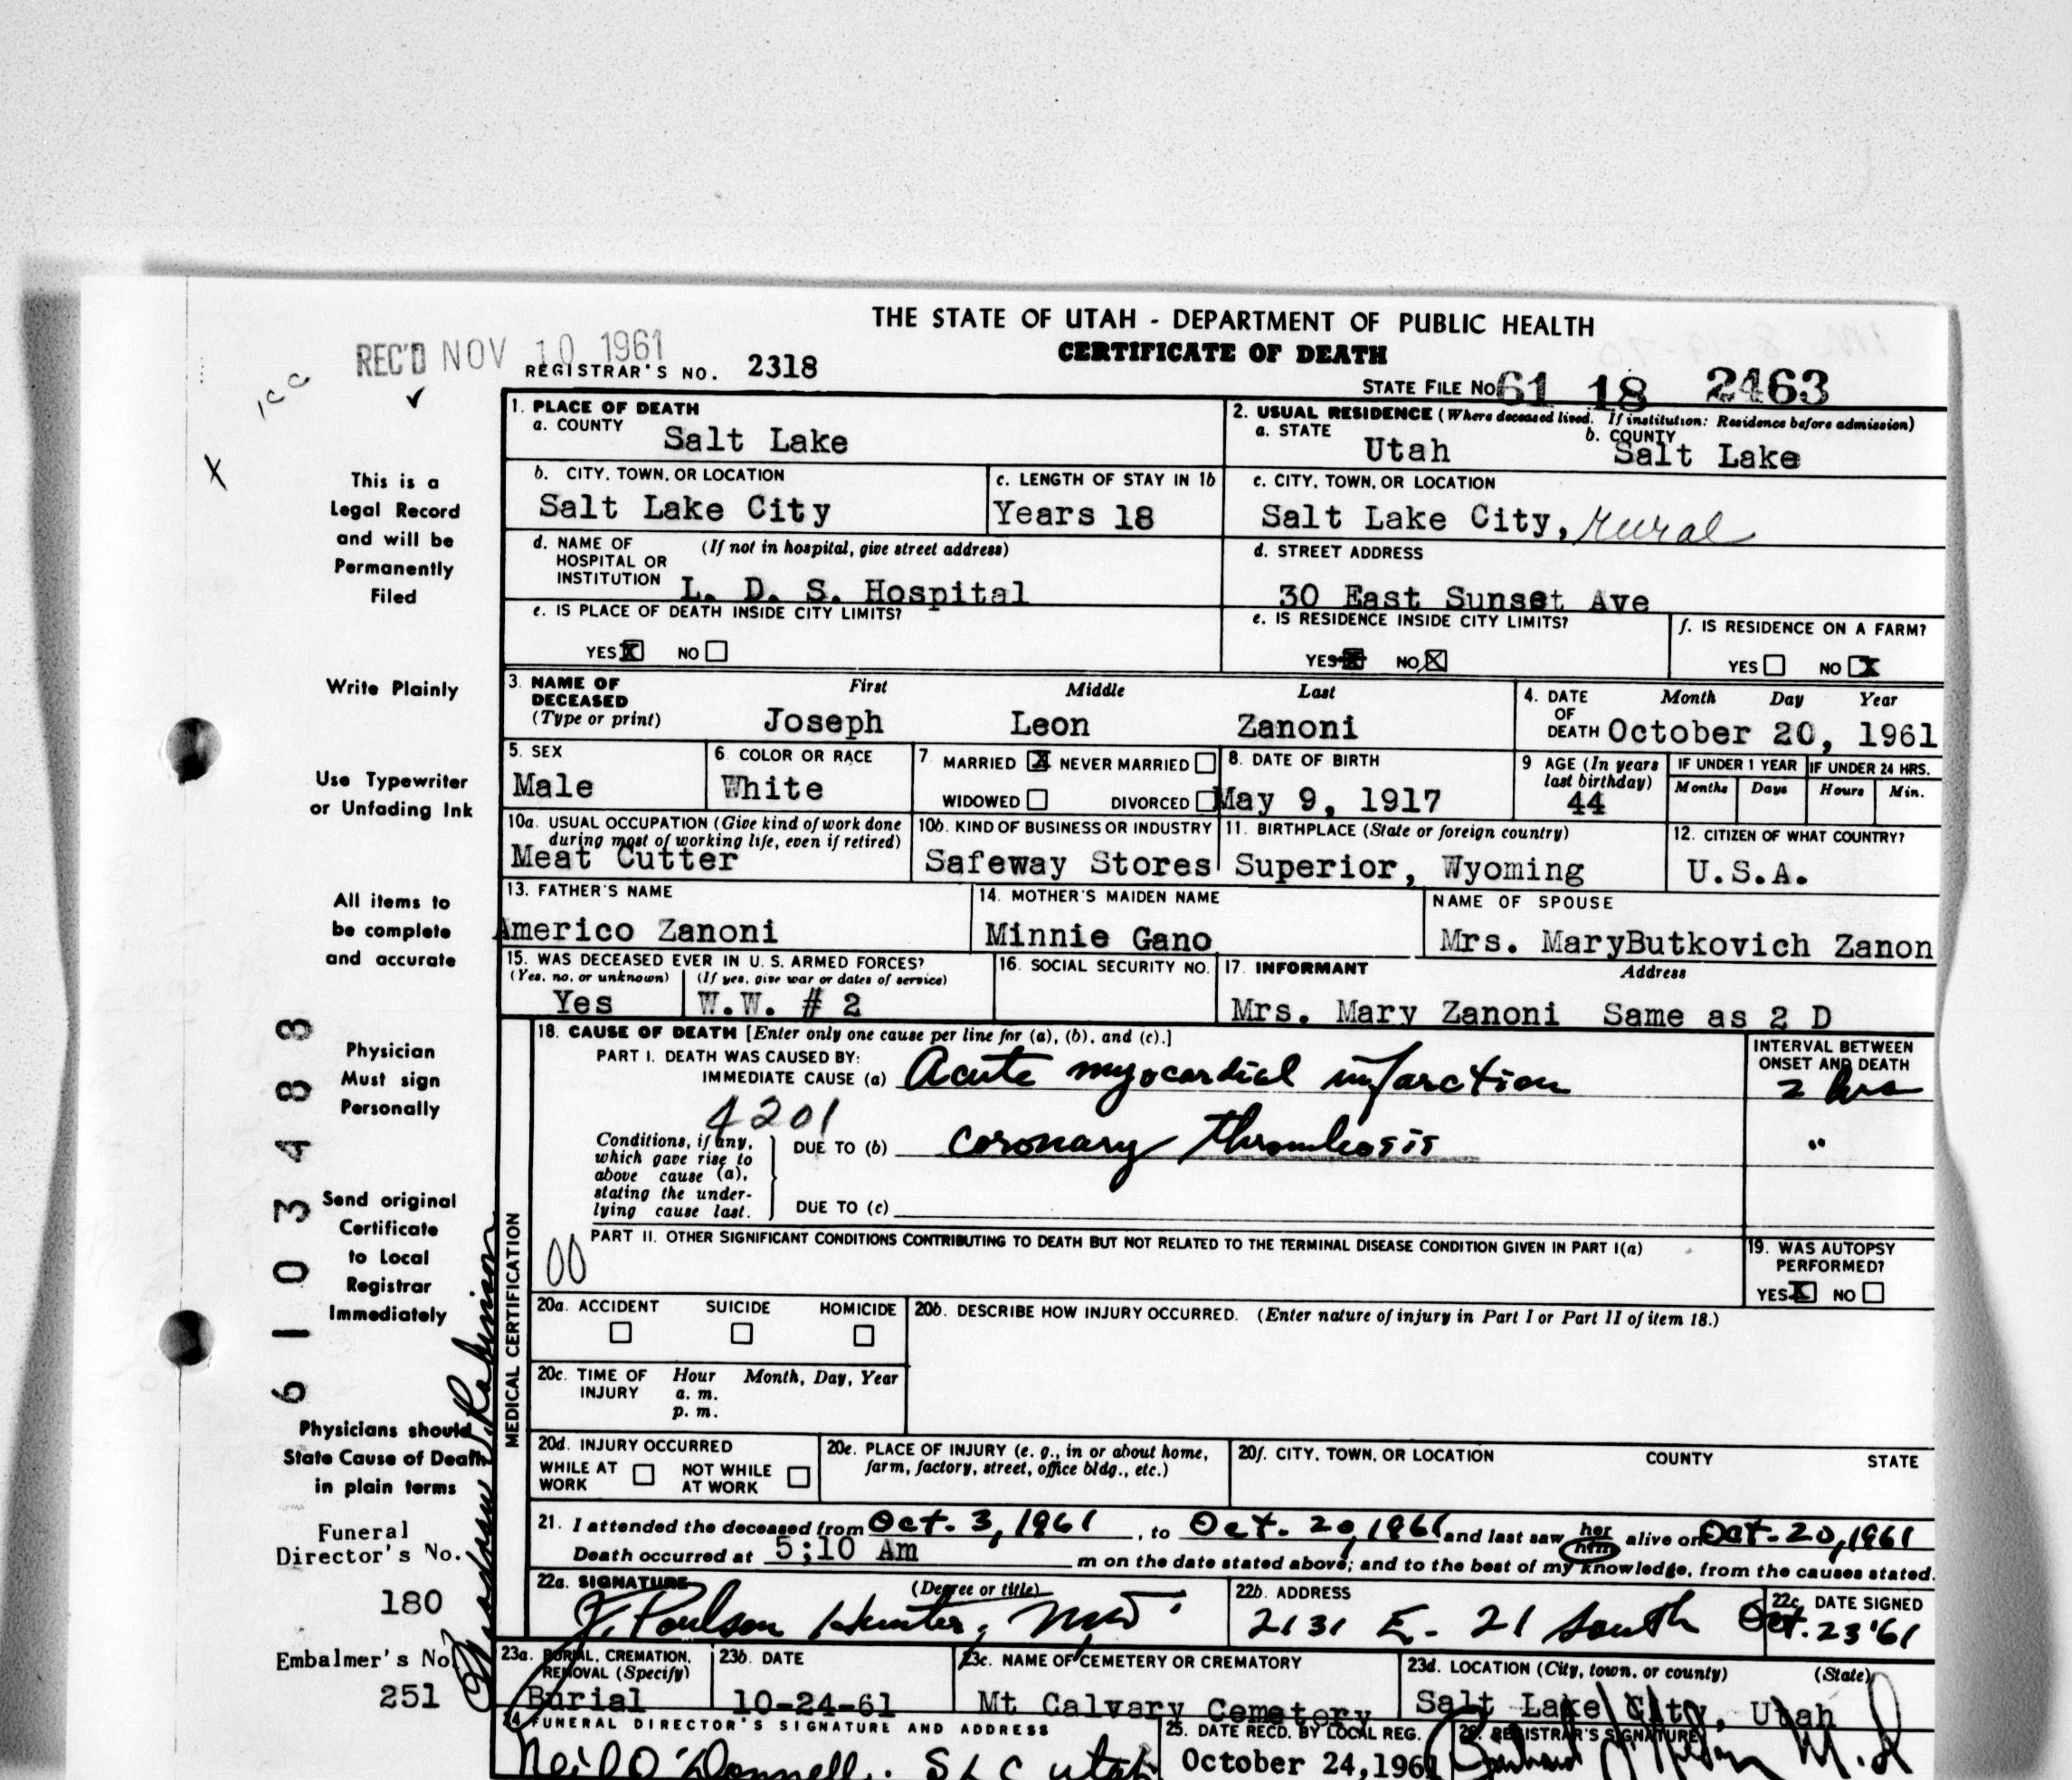 THE STATE OF UTAH - DEPARTMENT OF PUBLIC HEALTH
CERTIFICATE OF DEATH
REC'D NOV 10 1961
REGISTRAR'S NO. 2318
STATE FILE NO. 61 18 2463
1. PLACE OF DEATH
a. COUNTY Salt Lake
2. USUAL RESIDENCE (Where deceased lived. If institution: Residence before admission)
a. STATE Utah b. COUNTY Salt Lake
b. CITY, TOWN, OR LOCATION
Salt Lake City
c. LENGTH OF STAY IN 1b
Years 18
c. CITY, TOWN, OR LOCATION
Salt Lake City, Rural
d. NAME OF HOSPITAL OR INSTITUTION (If not in hospital, give street address)
L. D. S. Hospital
d. STREET ADDRESS
30 East Sunset Ave
e. IS PLACE OF DEATH INSIDE CITY LIMITS?
YES X NO
e. IS RESIDENCE INSIDE CITY LIMITS?
YES NO X
f. IS RESIDENCE ON A FARM?
YES NO X
3. NAME OF DECEASED (Type or print)
First Middle Last
Joseph Leon Zanoni
4. DATE OF DEATH Month Day Year
October 20, 1961
5. SEX
Male
6. COLOR OR RACE
White
7. MARRIED X NEVER MARRIED
WIDOWED DIVORCED
8. DATE OF BIRTH
May 9, 1917
9 AGE (In years last birthday)
44
IF UNDER 1 YEAR IF UNDER 24 HRS.
Months Days Hours Min.
10a. USUAL OCCUPATION (Give kind of work done during most of working life, even if retired)
Meat Cutter
10b. KIND OF BUSINESS OR INDUSTRY
Safeway Stores
11. BIRTHPLACE (State or foreign country)
Superior, Wyoming
12. CITIZEN OF WHAT COUNTRY?
U.S.A.
13. FATHER'S NAME
Americo Zanoni
14. MOTHER'S MAIDEN NAME
Minnie Gano
NAME OF SPOUSE
Mrs. MaryButkovich Zanon
15. WAS DECEASED EVER IN U. S. ARMED FORCES?
(Yes, no, or unknown) (If yes, give war or dates of service)
Yes W.W. # 2
16. SOCIAL SECURITY NO.
17. INFORMANT Address
Mrs. Mary Zanoni Same as 2 D
18. CAUSE OF DEATH [Enter only one cause per line for (a), (b), and (c).]
PART I. DEATH WAS CAUSED BY:
IMMEDIATE CAUSE (a) Acute myocardial infarction
INTERVAL BETWEEN ONSET AND DEATH
2 hrs
4201
Conditions, if any, which gave rise to above cause (a), stating the underlying cause last.
DUE TO (b) coronary thrombosis "
DUE TO (c)
PART II. OTHER SIGNIFICANT CONDITIONS CONTRIBUTING TO DEATH BUT NOT RELATED TO THE TERMINAL DISEASE CONDITION GIVEN IN PART I(a)
00
19. WAS AUTOPSY PERFORMED?
YES X NO
20a. ACCIDENT SUICIDE HOMICIDE
20b. DESCRIBE HOW INJURY OCCURRED. (Enter nature of injury in Part I or Part II of item 18.)
20c. TIME OF INJURY Hour Month, Day, Year
a. m.
p. m.
20d. INJURY OCCURRED
WHILE AT WORK NOT WHILE AT WORK
20e. PLACE OF INJURY (e. g., in or about home, farm, factory, street, office bldg., etc.)
20f. CITY, TOWN, OR LOCATION COUNTY STATE
21. I attended the deceased from Oct. 3, 1961, to Oct. 20, 1961 and last saw her him alive on Oct. 20, 1961
Death occurred at 5;10 Am m on the date stated above; and to the best of my knowledge, from the causes stated.
22a. SIGNATURE (Degree or title)
J. Poulson Hunter, MD.
22b. ADDRESS
2131 E. 21 South
22c. DATE SIGNED
Oct. 23 '61
23a. BURIAL, CREMATION, REMOVAL (Specify)
Burial
23b. DATE
10-24-61
23c. NAME OF CEMETERY OR CREMATORY
Mt Calvary Cemetery
23d. LOCATION (City, town, or county) (State)
Salt Lake City, Utah
24 FUNERAL DIRECTOR'S SIGNATURE AND ADDRESS
Neil O'Donnell. SLC Utah
25. DATE RECD. BY LOCAL REG.
October 24, 1961
26. REGISTRAR'S SIGNATURE
M.D
MEDICAL CERTIFICATION
This is a
Legal Record
and will be
Permanently
Filed
Write Plainly
Use Typewriter
or Unfading Ink
All items to
be complete
and accurate
Physician
Must sign
Personally
Send original
Certificate
to Local
Registrar
Immediately
Physicians should
State Cause of Death
in plain terms
Funeral
Director's No.
180
Embalmer's No
251
61 03488
Robinson